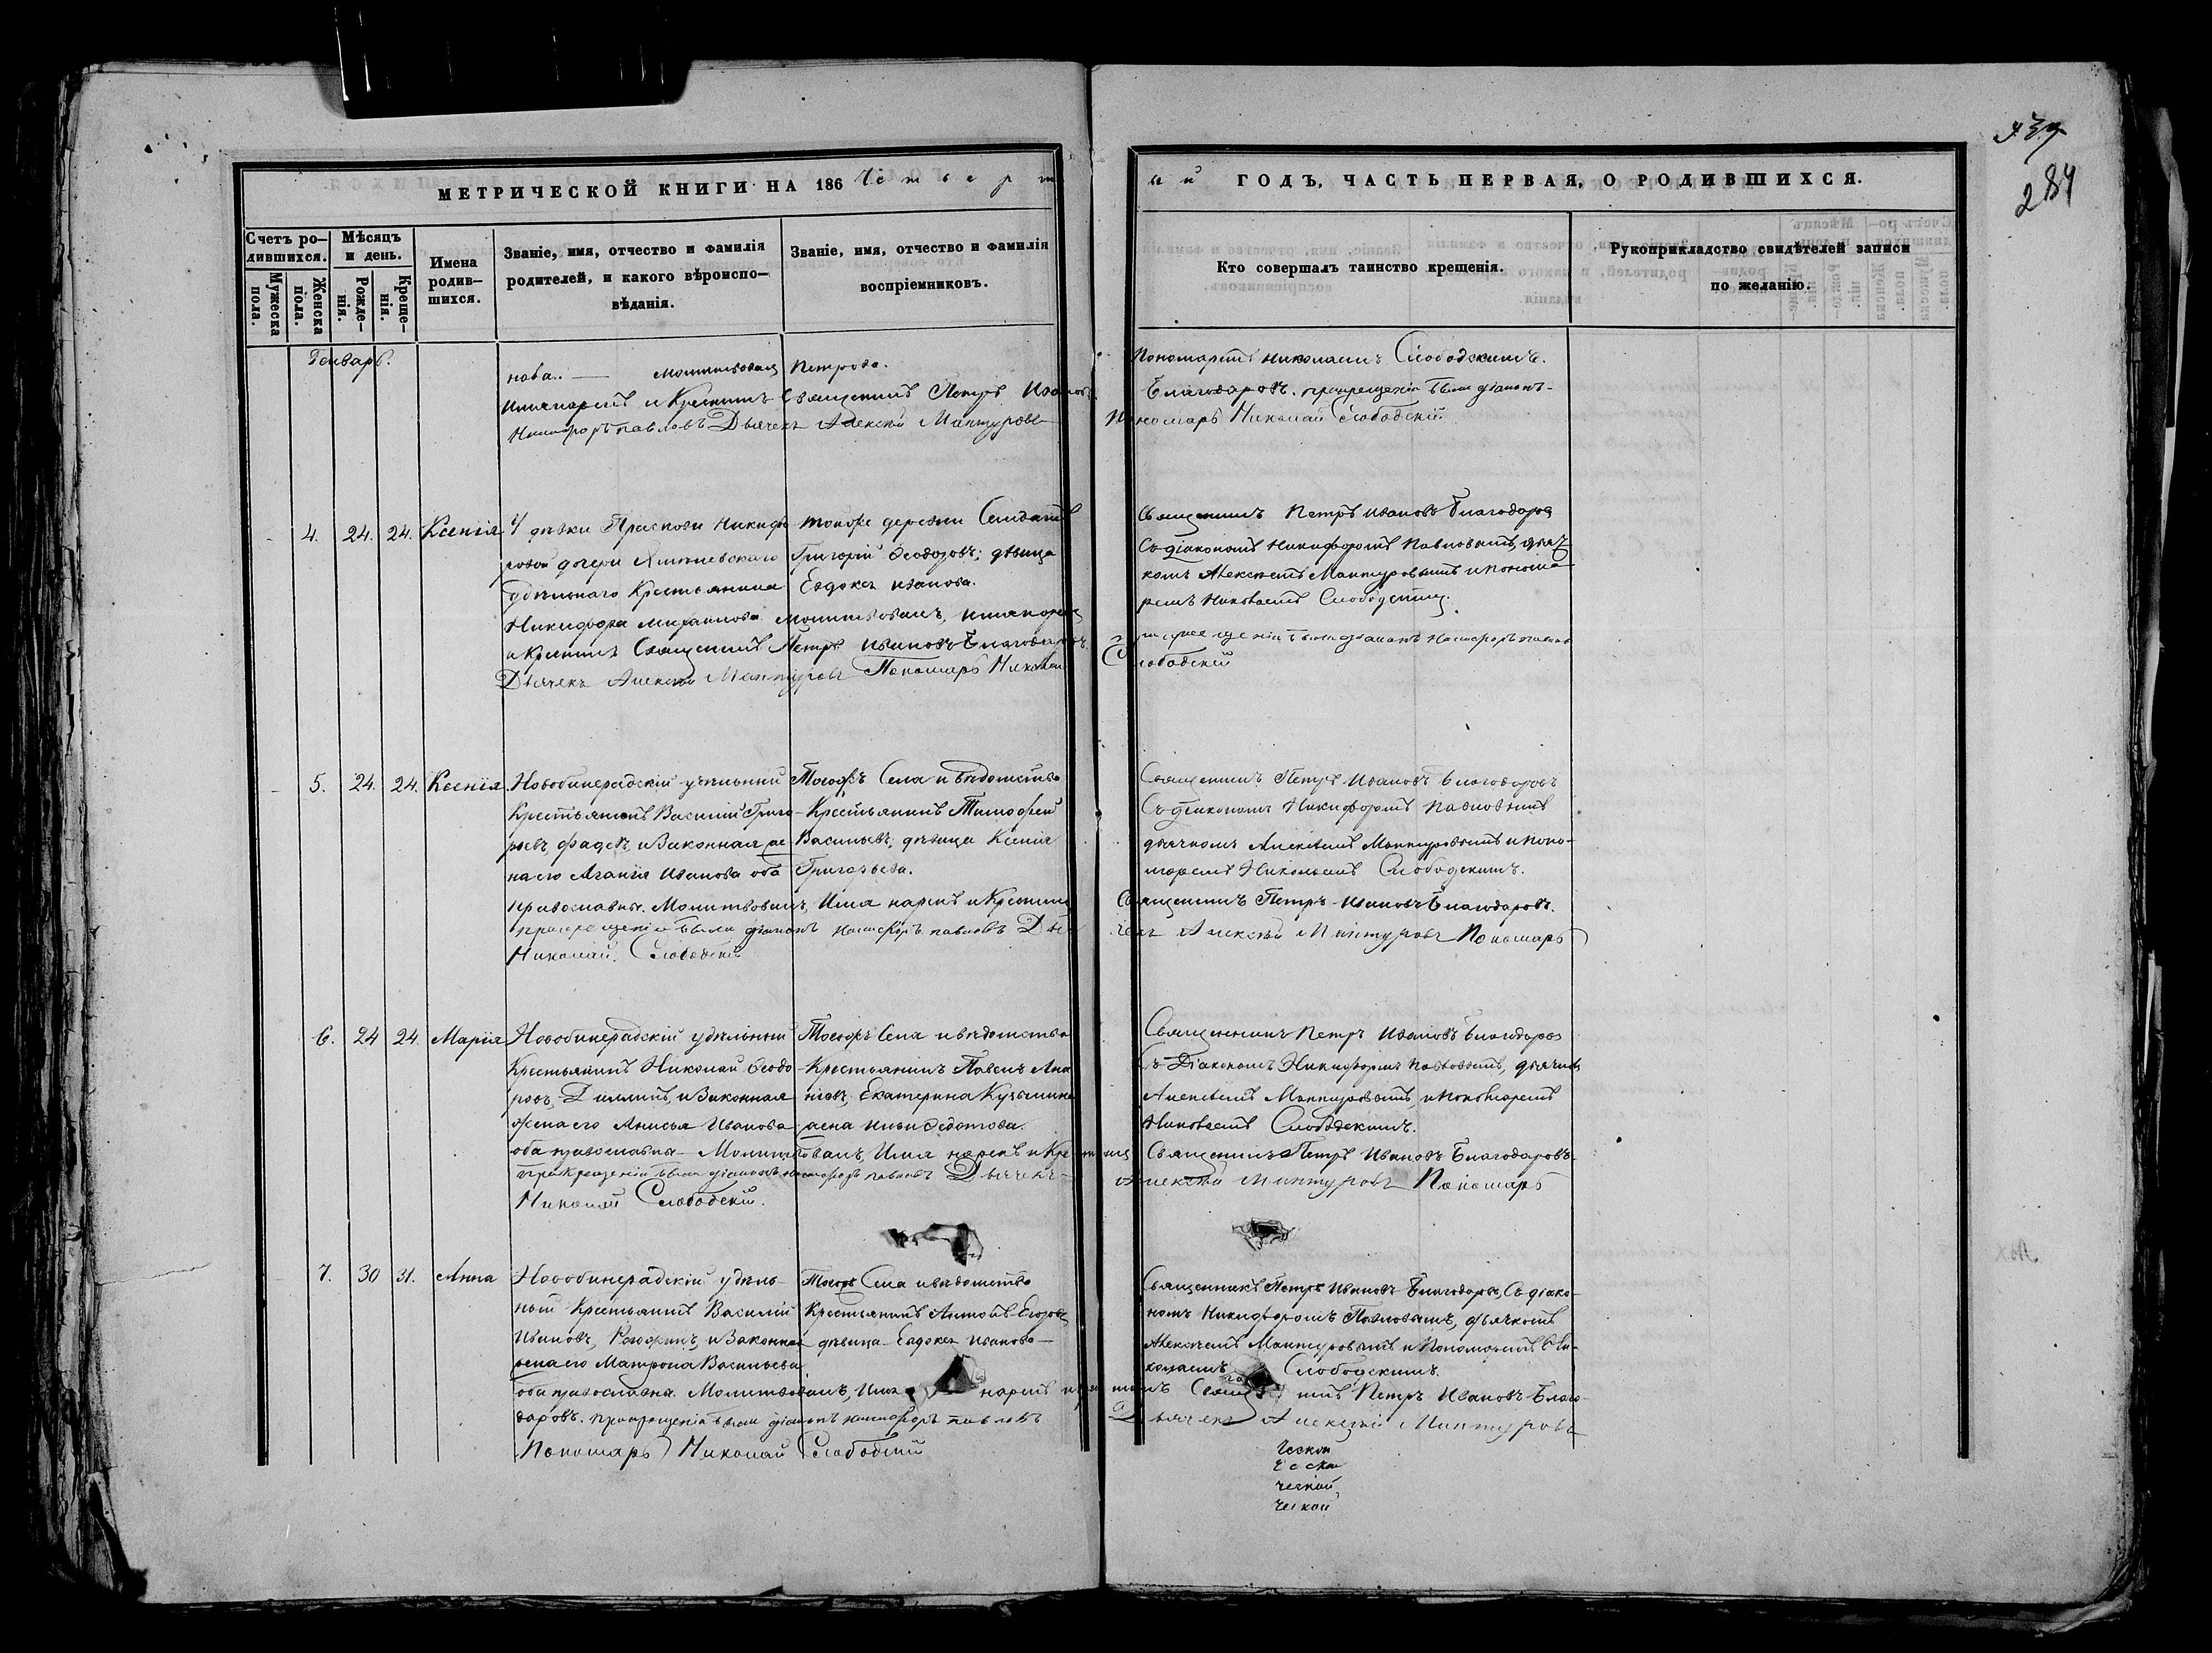 439
284
МЕТРИЧЕСКОЙ КНИГИ НА 186 Четверт
ый ГОДЪ, ЧАСТЬ ПЕРВАЯ, О РОДИВШИХСЯ.
Счетъ ро-
дившихся.
Мужеска
пола.
Женска
пола.
Мѣсяцъ
и день.
Рожде-
нія.
Креще-
нія.
Имена
родив-
шихся.
Званіе, имя, отчество и фамилія
родителей, и какого вѣроиспо-
вѣданія.
Званіе, имя, отчество и фамилія
воспріемниковъ.
Кто совершалъ таинство крещенія.
Рукоприкладство свидѣтелей записи
по желанію.
Генварь.
нова. — Молитвовалъ
Петрова.
Пономаремъ Николаемъ Слободскимъ.
и Крестилъ Священникъ Петръ Иванов
Благодаровъ. при крещеніи были діаконъ
Никифоръ Павловъ Дьячекъ Алексѣй Мантуровъ
Пономарь Николай Слободскій
4. 24. 24. Ксенія
У дѣвки Праскови Никифо
ровой дочери
удѣльнаго Крестьянина
Никифора Михайлова молитвовалъ,
и Крестилъ Священникъ Петръ Ивановъ Благодаровъ.
Дьячекъ Алексѣй Мантуровъ Пономарь Николай
тойже деревни
Григорій Ѳеодоровъ; дѣвица
Евдокея Иванова.
Священникъ Петръ Ивановъ Благодаров
Съ діакономъ Никифоромъ Павловымъ, дьяч
комъ Алексѣемъ Мантуровымъ и понома
ремъ Николаемъ Слободским.
при крещеніи были діаконъ Никифоръ Павлов
Слободскій
5. 24. 24. Ксенія
Новобинерадскій удѣльный
Крестьянинъ Василій Григо-
рьевъ, и Законная же
на его Иванова оба
православны. Молитвовалъ, Имя нарекъ и Крестил
при крещеніи были діаконъ Никифоръ Павловъ Дья
Николай Слободскій
Тогожъ Села и вѣдомства
Крестьянинъ Тимофей
Васильевъ, дѣвица Ксенія
Григорьева.
Священникъ Петръ Ивановъ Благодаровъ
Съ діакономъ Никифоромъ Павловымъ
дьячкомъ Алексѣемъ Мантуровымъ и поно-
маремъ Николаемъ Слободскимъ.
Священникъ Петръ Ивановъ Благодаровъ.
чекъ Алексѣй Мантуровъ Пономарь
6. 24 24. Марія
Новобинерадскій удѣльный
Крестьянинъ Николай Ѳеодо
ровъ, и Законная
жена его Анисья Иванова
оба православны Молитвовалъ, Имя нарекъ и Крестил
при Крещеніи были діаконъ Никифоръ Павловъ Дьячекъ
Николай Слободскій.
Тогожъ Села и вѣдомства
Крестьянинъ Павелъ Ана
ньевъ, Екатерина Кузьмина
жена Ильи Ѳедотова.
Священникъ Петръ Ивановъ Благодаров
Съ Діакономъ Никифоромъ Павловымъ, дьячком
Алексѣемъ Мантуровымъ, и пономаремъ
Николаемъ Слободскимъ.
Священникъ Петръ Ивановъ Благодаровъ.
Алексѣй Мантуровъ Пономарь
7. 30 31. Анна
Новобинерадскій удѣль-
ный Крестьянинъ Василій
Ивановъ, и Законная
жена его Матрона Васильева
оба православна. Молитвовалъ, Имя нарекъ и крестилъ
даровъ. при крещеніи были діаконъ Никифоръ Павловъ
Пономарь Николай Слободскій
Тогожъ Села и вѣдомства
Крестьянинъ Антонъ Егоровъ
дѣвица Евдокея Иванова
Священникъ Петръ Ивановъ Благодаровъ, Съ діако-
номъ Никифоромъ Павловымъ, дьячкомъ
Алексѣемъ Мантуровымъ и Пономаремъ Ни-
колаемъ Слободскимъ.
Петръ Ивановъ Благо-
Дьячекъ Алексѣй Мантуровъ
ческой
ческой
ческой
ческой